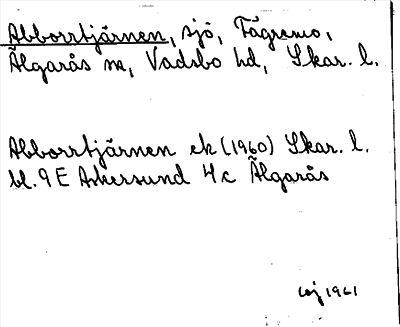 Abborrtjärnen, sjö, Fägremo,
Älgarås sn, Vadsbo hd, Skar. l.
Abborrtjärnen ek (1960) Skar. l.
bl. 9E Askersund 4c Älgarås
1961